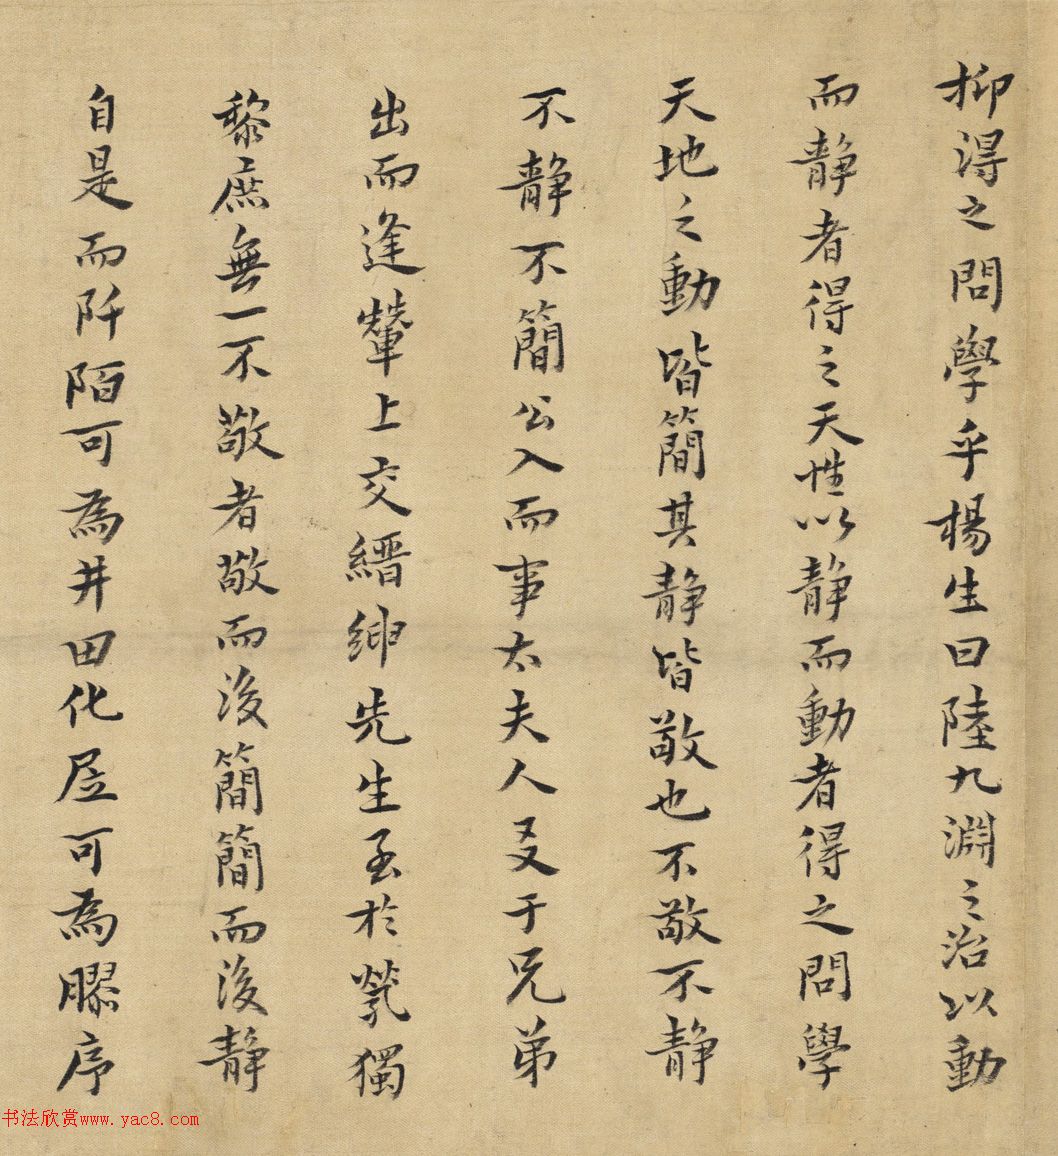 抑淂之問學乎楊生曰陸九淵之治以動
而静者得之天性以静而動者得之問學
天地之動皆簡其静皆敬也不敬不静
不静不簡公入而事太夫人及于兄弟
出而逢輦上交縉紳先生至於煢獨
黎庶無一不敬者敬而後簡簡而後静
自是而阡陌可為井田化居可為膠序
书法欣赏www.yac8.com